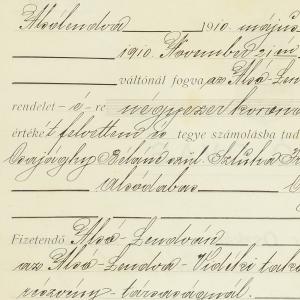 Alsólendva 1910. május
1910. November 2 ián
váltónál fogva az Alsó-Len
rendelet-é-re négyezer korona
értékét felvettem és tegye számolásba tud
Osvjághy Béláné szül. Szluha
Alsódabas
Fizetendő Alsó-Lendván
az Alsó-Lendva-Vidéki taka
részvény-társaságnál.